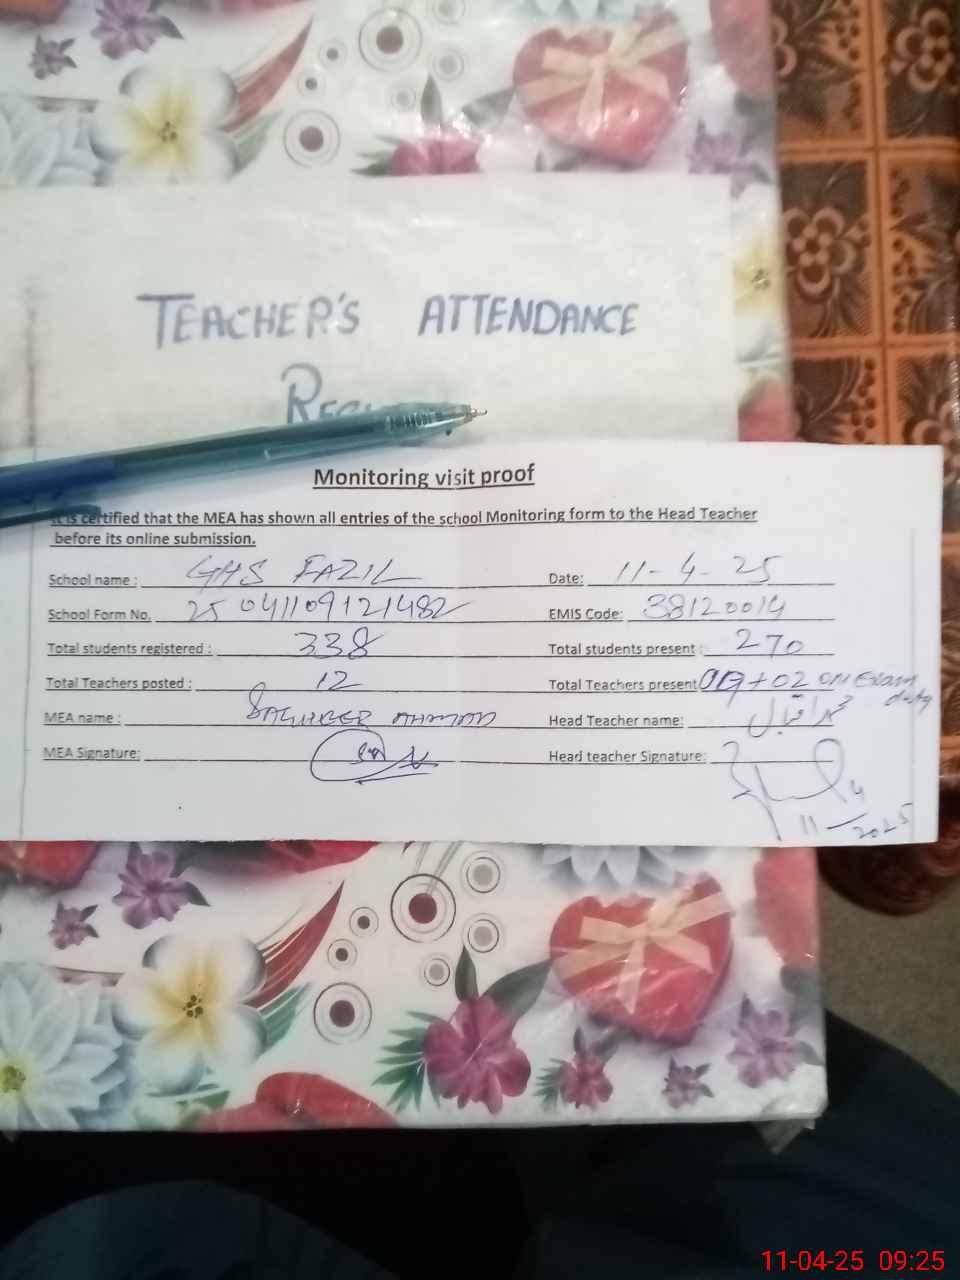 TEACHER'S ATTENDANCE
Monitoring visit proof
It is certified that the MEA has shown all entries of the school Monitoring form to the Head Teacher
before its online submission.
School name : GHS FAZIL Date: 11-4-25
School Form No. 25041109121482 EMIS Code: 38120014
Total students registered : 338 Total students present : 270
Total Teachers posted : 12 Total Teachers present + 02 ON Exam duty
MEA name : SAGHEER AHMAD Head Teacher name: محمد اقبال
MEA Signature: Head teacher Signature:
11-04-25 09:25